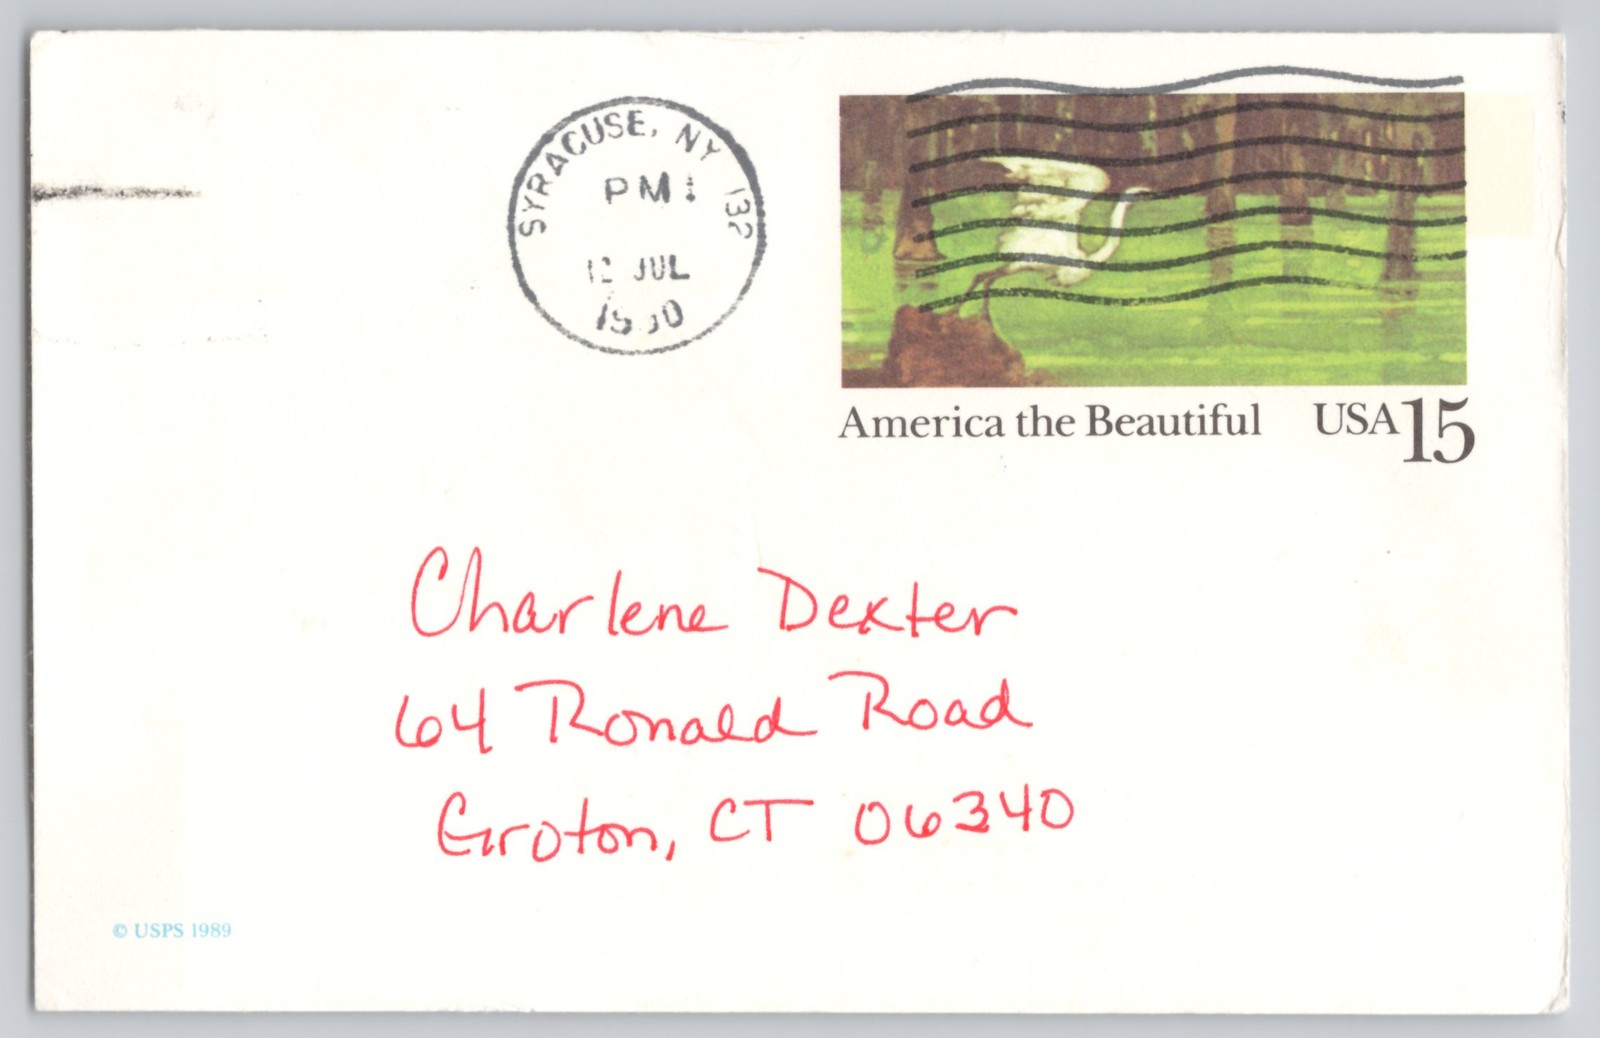 SYRACUSE, NY 132
PM
JUL
America the Beautiful USA 15
Charlene Dexter
64 Ronald Road
Groton, CT 06340
© USPS 1989